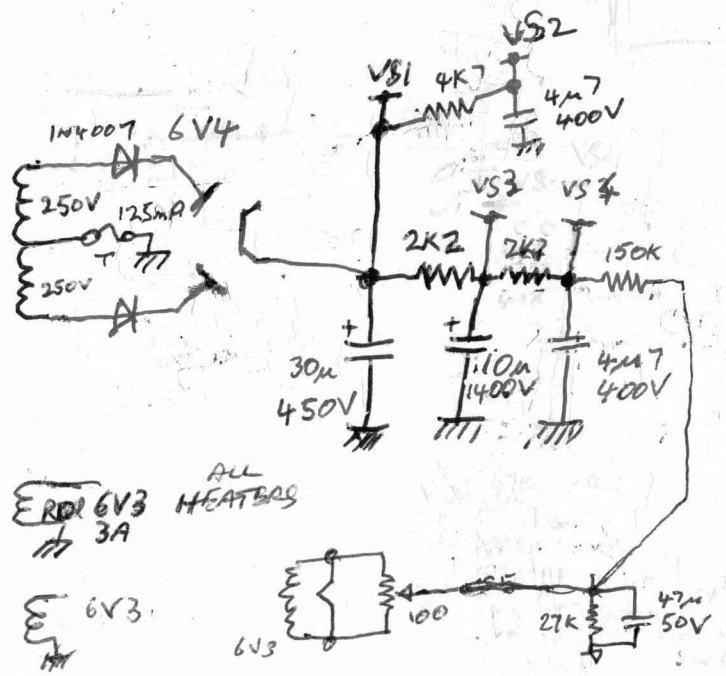 VS2
VS1
4K7
4μ7
400V
1N4007
6V4
250V
125mA
T
VS3
VS4
2K2
2K2
150K
250V
+
+
30μ
450V
10μ
400V
4μ7
400V
ALL
HEATERS
6V3
3A
6V3
6V3
100
27K
47μ
50V